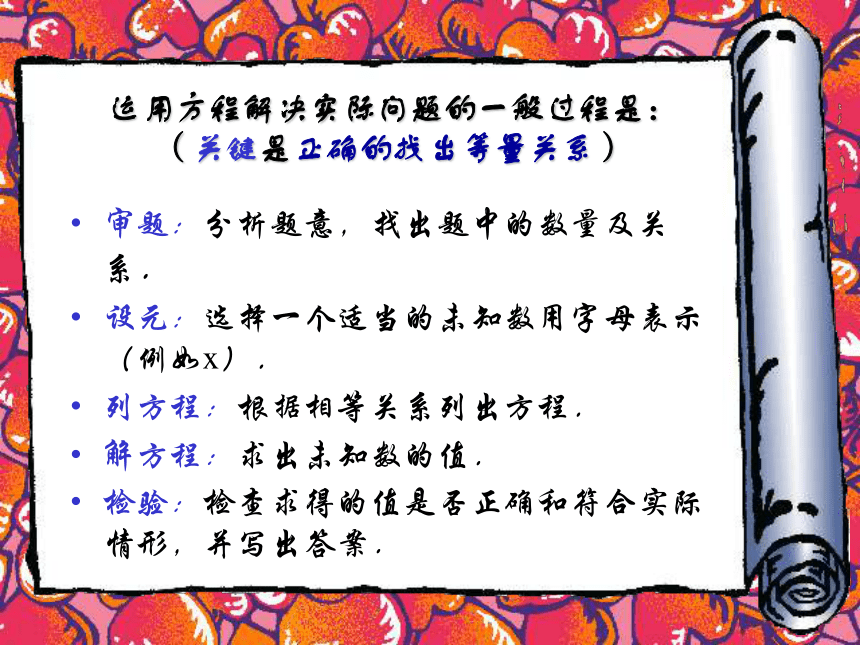 运用方程解决实际问题的一般过程是：
（关键是正确的找出等量关系）
• 审题：分析题意，找出题中的数量及关
系．
• 设元：选择一个适当的未知数用字母表示
（例如x）．
• 列方程：根据相等关系列出方程．
• 解方程：求出未知数的值．
• 检验：检查求得的值是否正确和符合实际
情形，并写出答案．